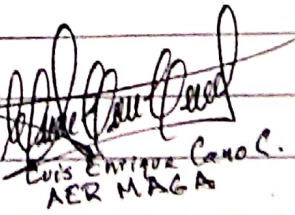 Luis Enrique Cano C.
AER MAGA